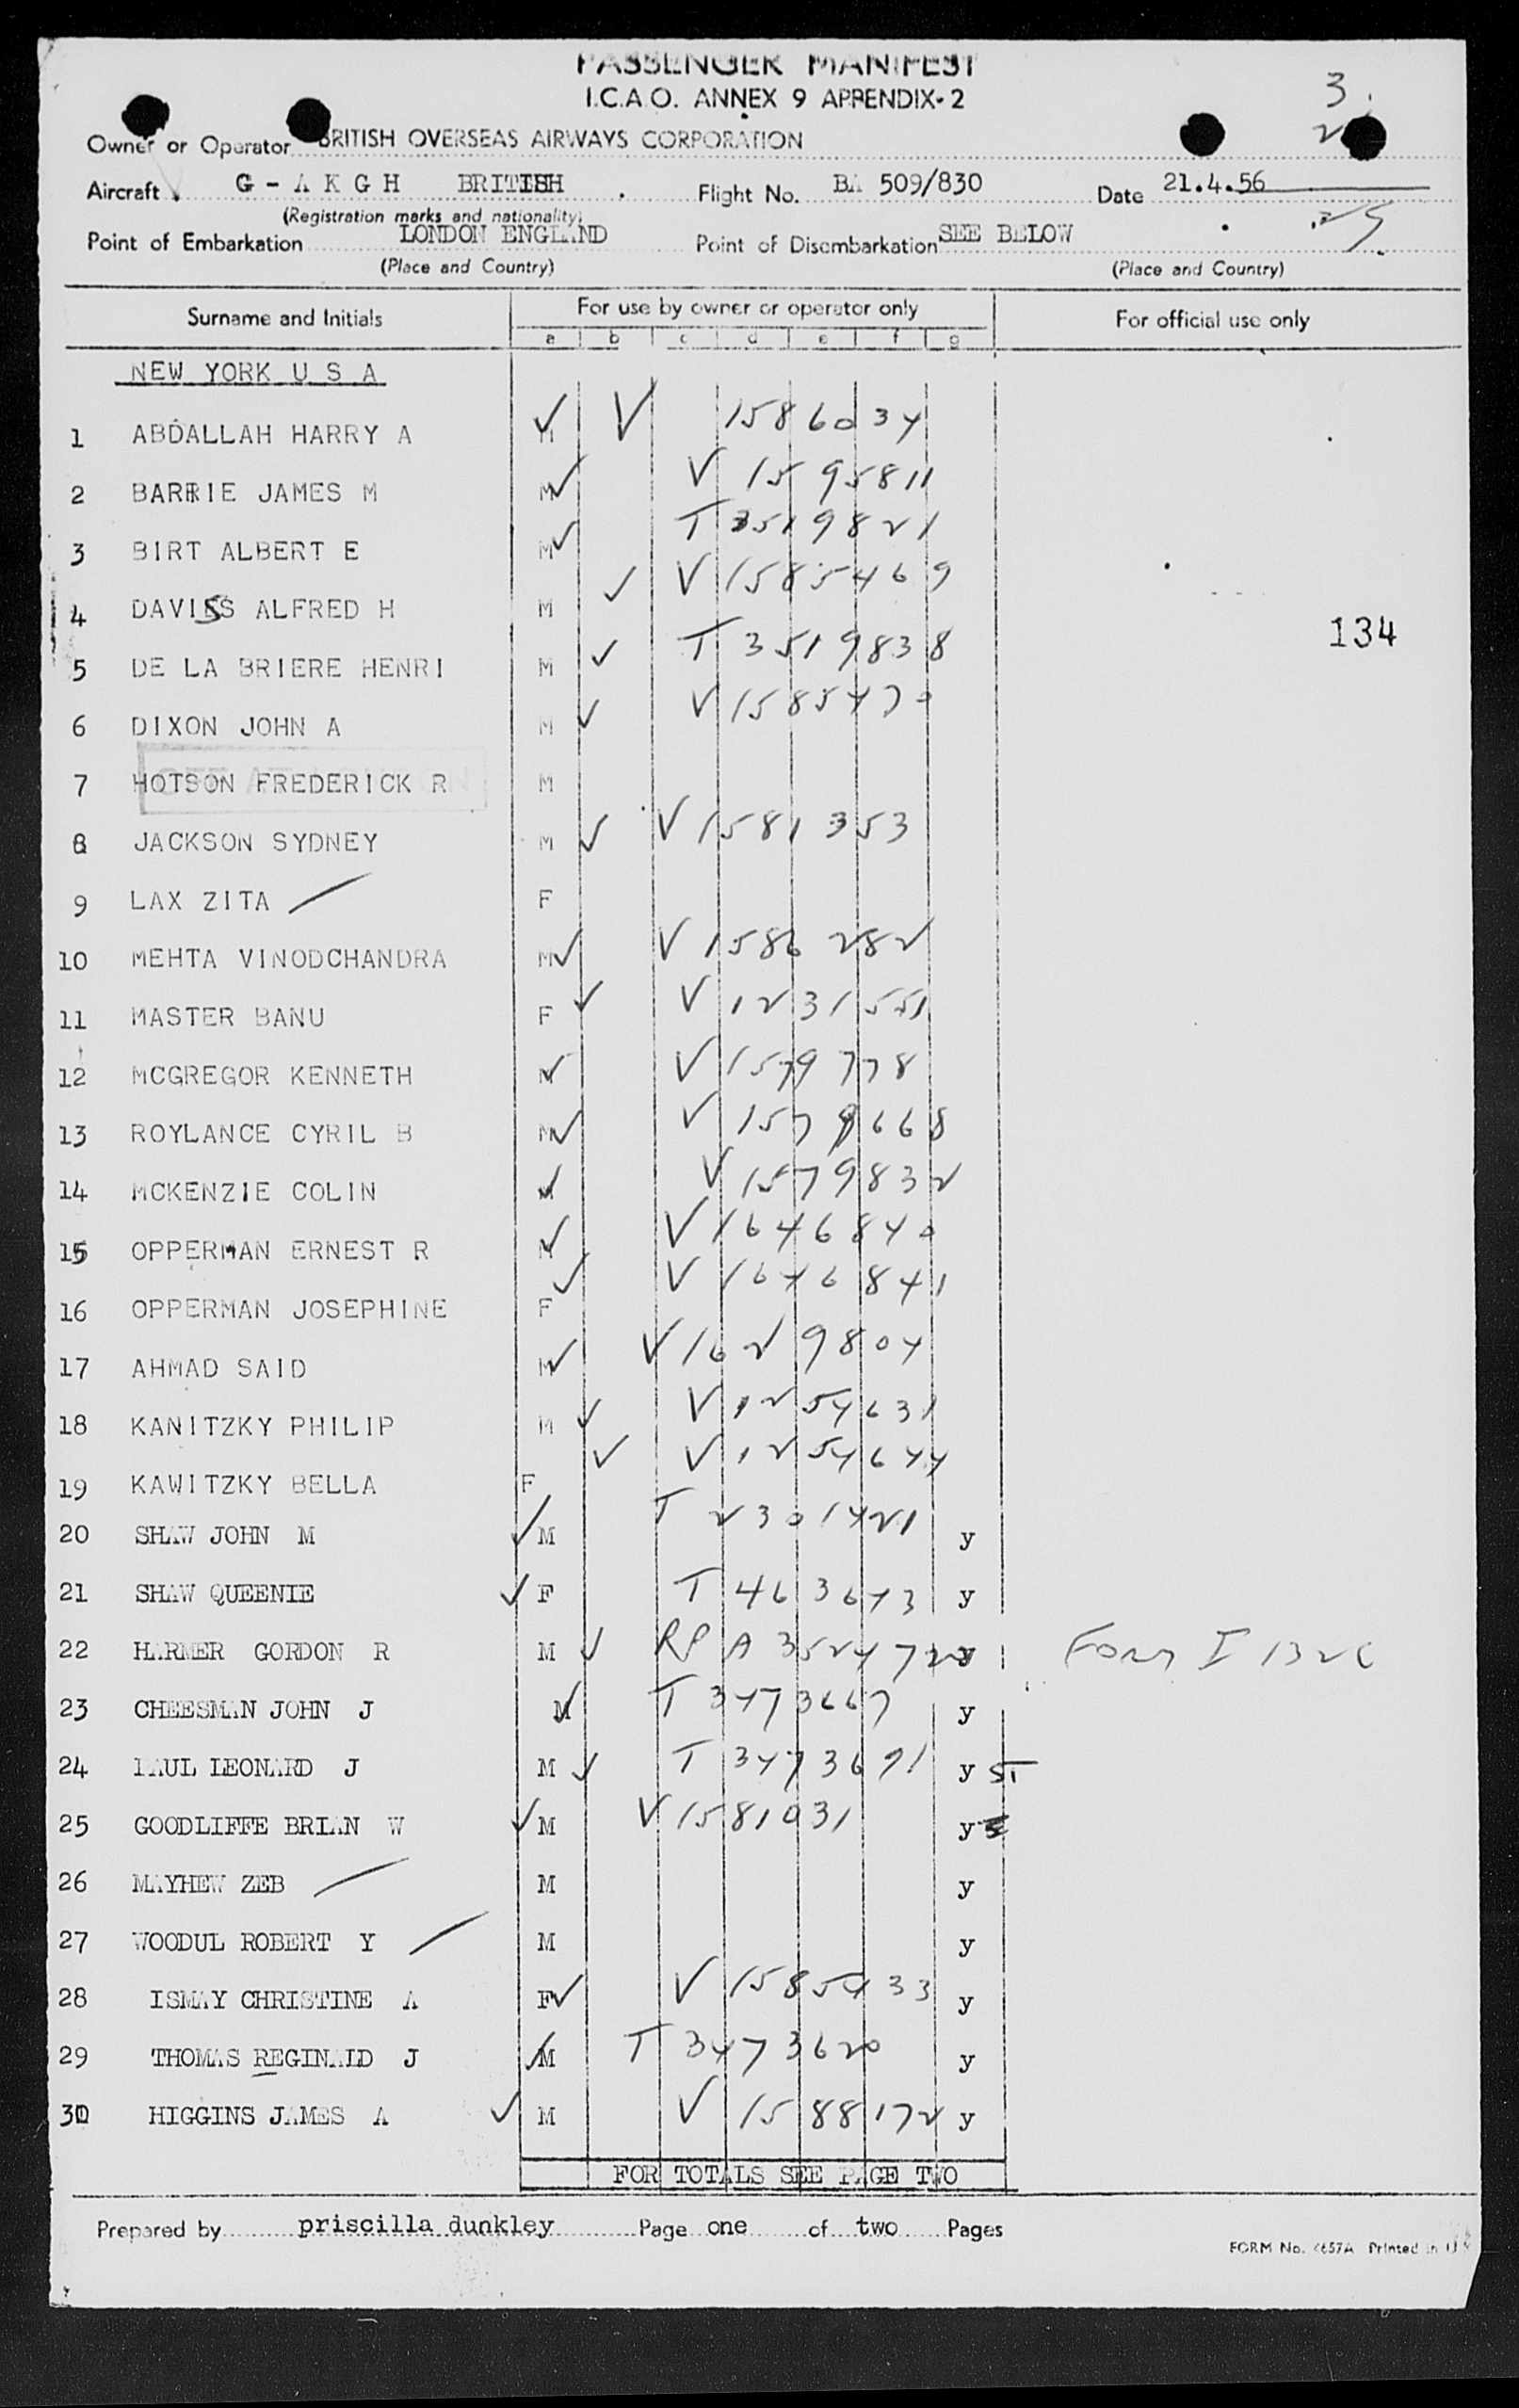 PASSENGER MANIFEST
I.C.A.O. ANNEX 9 APPENDIX-2
3
Owner or Operator BRITISH OVERSEAS AIRWAYS CORPORATION
Aircraft G - A K G H BRITISH Flight No. BA 509/830 Date 21.4.56
(Registration marks and nationality)
Point of Embarkation LONDON ENGLAND Point of Disembarkation SEE BELOW
(Place and Country) (Place and Country)
Surname and Initials For use by owner or operator only For official use only
a b c d e f g
NEW YORK U S A
1 ABDALLAH HARRY A M V 1586034
2 BARRIE JAMES M M V 1595811
3 BIRT ALBERT E M T 3519821
4 DAVIS ALFRED H M V 1585469
134
5 DE LA BRIERE HENRI M T 3519838
6 DIXON JOHN A M V 1585470
7 HOTSON FREDERICK R M
8 JACKSON SYDNEY M V 1581353
9 LAX ZITA F
10 MEHTA VINODCHANDRA M V 1586282
11 MASTER BANU F V 1231551
12 MCGREGOR KENNETH M V 1579778
13 ROYLANCE CYRIL B M V 1579668
14 MCKENZIE COLIN M V 1579832
15 OPPERMAN ERNEST R M V 1646840
16 OPPERMAN JOSEPHINE F V 1646841
17 AHMAD SAID M V 1629804
18 KANITZKY PHILIP M V 1254631
19 KAWITZKY BELLA F V 1254644
20 SHAW JOHN M M T 2301421 y
21 SHAW QUEENIE F T 463643 y
22 HARMER GORDON R M RP A 352472 y Form I 132
23 CHEESMAN JOHN J M T 3473667 y
24 PAUL LEONARD J M T 3473691 y ST
25 GOODLIFFE BRIAN W M V 1581031 y
26 MAYHEW ZEB M y
27 WOODUL ROBERT Y M y
28 ISMAY CHRISTINE A F V 1585433 y
29 THOMAS REGINALD J M T 3473620 y
30 HIGGINS JAMES A M V 1588172 y
FOR TOTALS SEE PAGE TWO
Prepared by priscilla dunkley Page one of two Pages
FORM No. 4657A Printed in